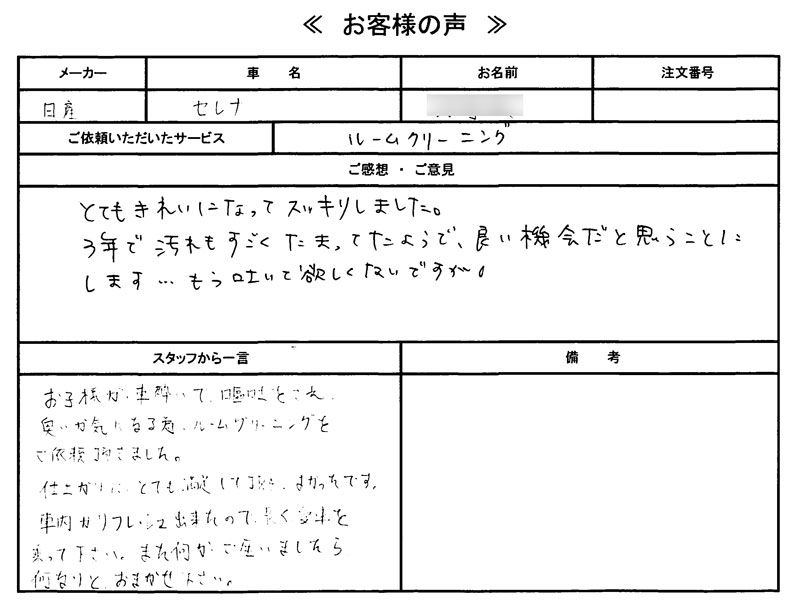 ≪ お客様の声 ≫
メーカー 車 名 お名前 注文番号
日産 セレナ
ご依頼いただいたサービス ルームクリーニング
ご感想 ・ ご意見
とてもきれいになってスッキリしました。
3年で汚れもすごくたまってたようで、良い機会だと思うことに
します… もう吐いて欲しくないですが。
スタッフから一言 備 考
お子様が車酔いで、嘔吐をされ、
臭いが気になる為、ルームクリーニングを
ご依頼頂きました。
仕上がりに、とても満足して頂き、よかったです。
車内がリフレッシュ出来たので、長く
乗って下さい。また何かございましたら
何なりと、おまかせ下さい。